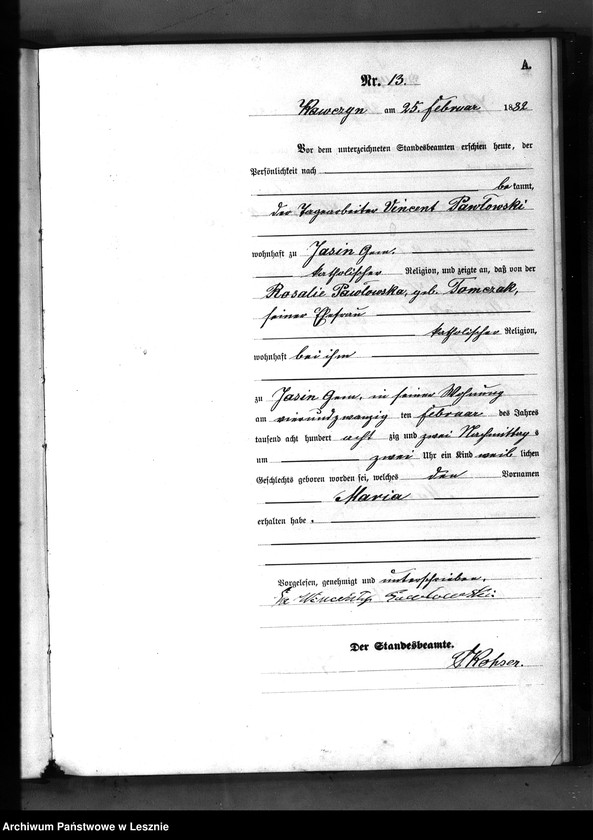 A.
Nr. 13.
Kawczyn am 25. Februar 1882
Vor dem unterzeichneten Standesbeamten erschien heute, der
Persönlichkeit nach
bekannt,
der Tagearbeiter Vincent Pawłowski
wohnhaft zu Jasin Gem.
katholischer Religion, und zeigte an, daß von der
Rosalie Pawłowska, geb. Tomczak,
seiner Ehefrau
katholischer Religion,
wohnhaft bei ihm
zu Jasin Gem. in seiner Wohnung
am vierundzwanzig ten Februar des Jahres
tausend acht hundert acht zig und zwei Nachmittags
um zwei Uhr ein Kind weiblichen
Geschlechts geboren worden sei, welches den Vornamen
Maria
erhalten habe.
Vorgelesen, genehmigt und unterschrieben.
Pawłowski
Der Standesbeamte.
Archiwum Państwowe w Lesznie